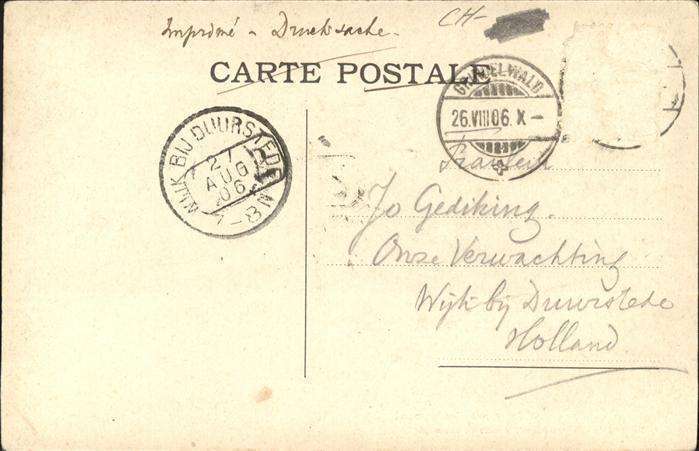 Imprimé - Drucksache.
CH-
CARTE POSTALE
GRINDELWALD
26.VIII.06.X-
WIJK BIJ DUURSTEDE
27
AUG
06
7-8N
Fräulein
Jo Gediking.
Onze Verwachting
Wijk bij Duurstede
Holland